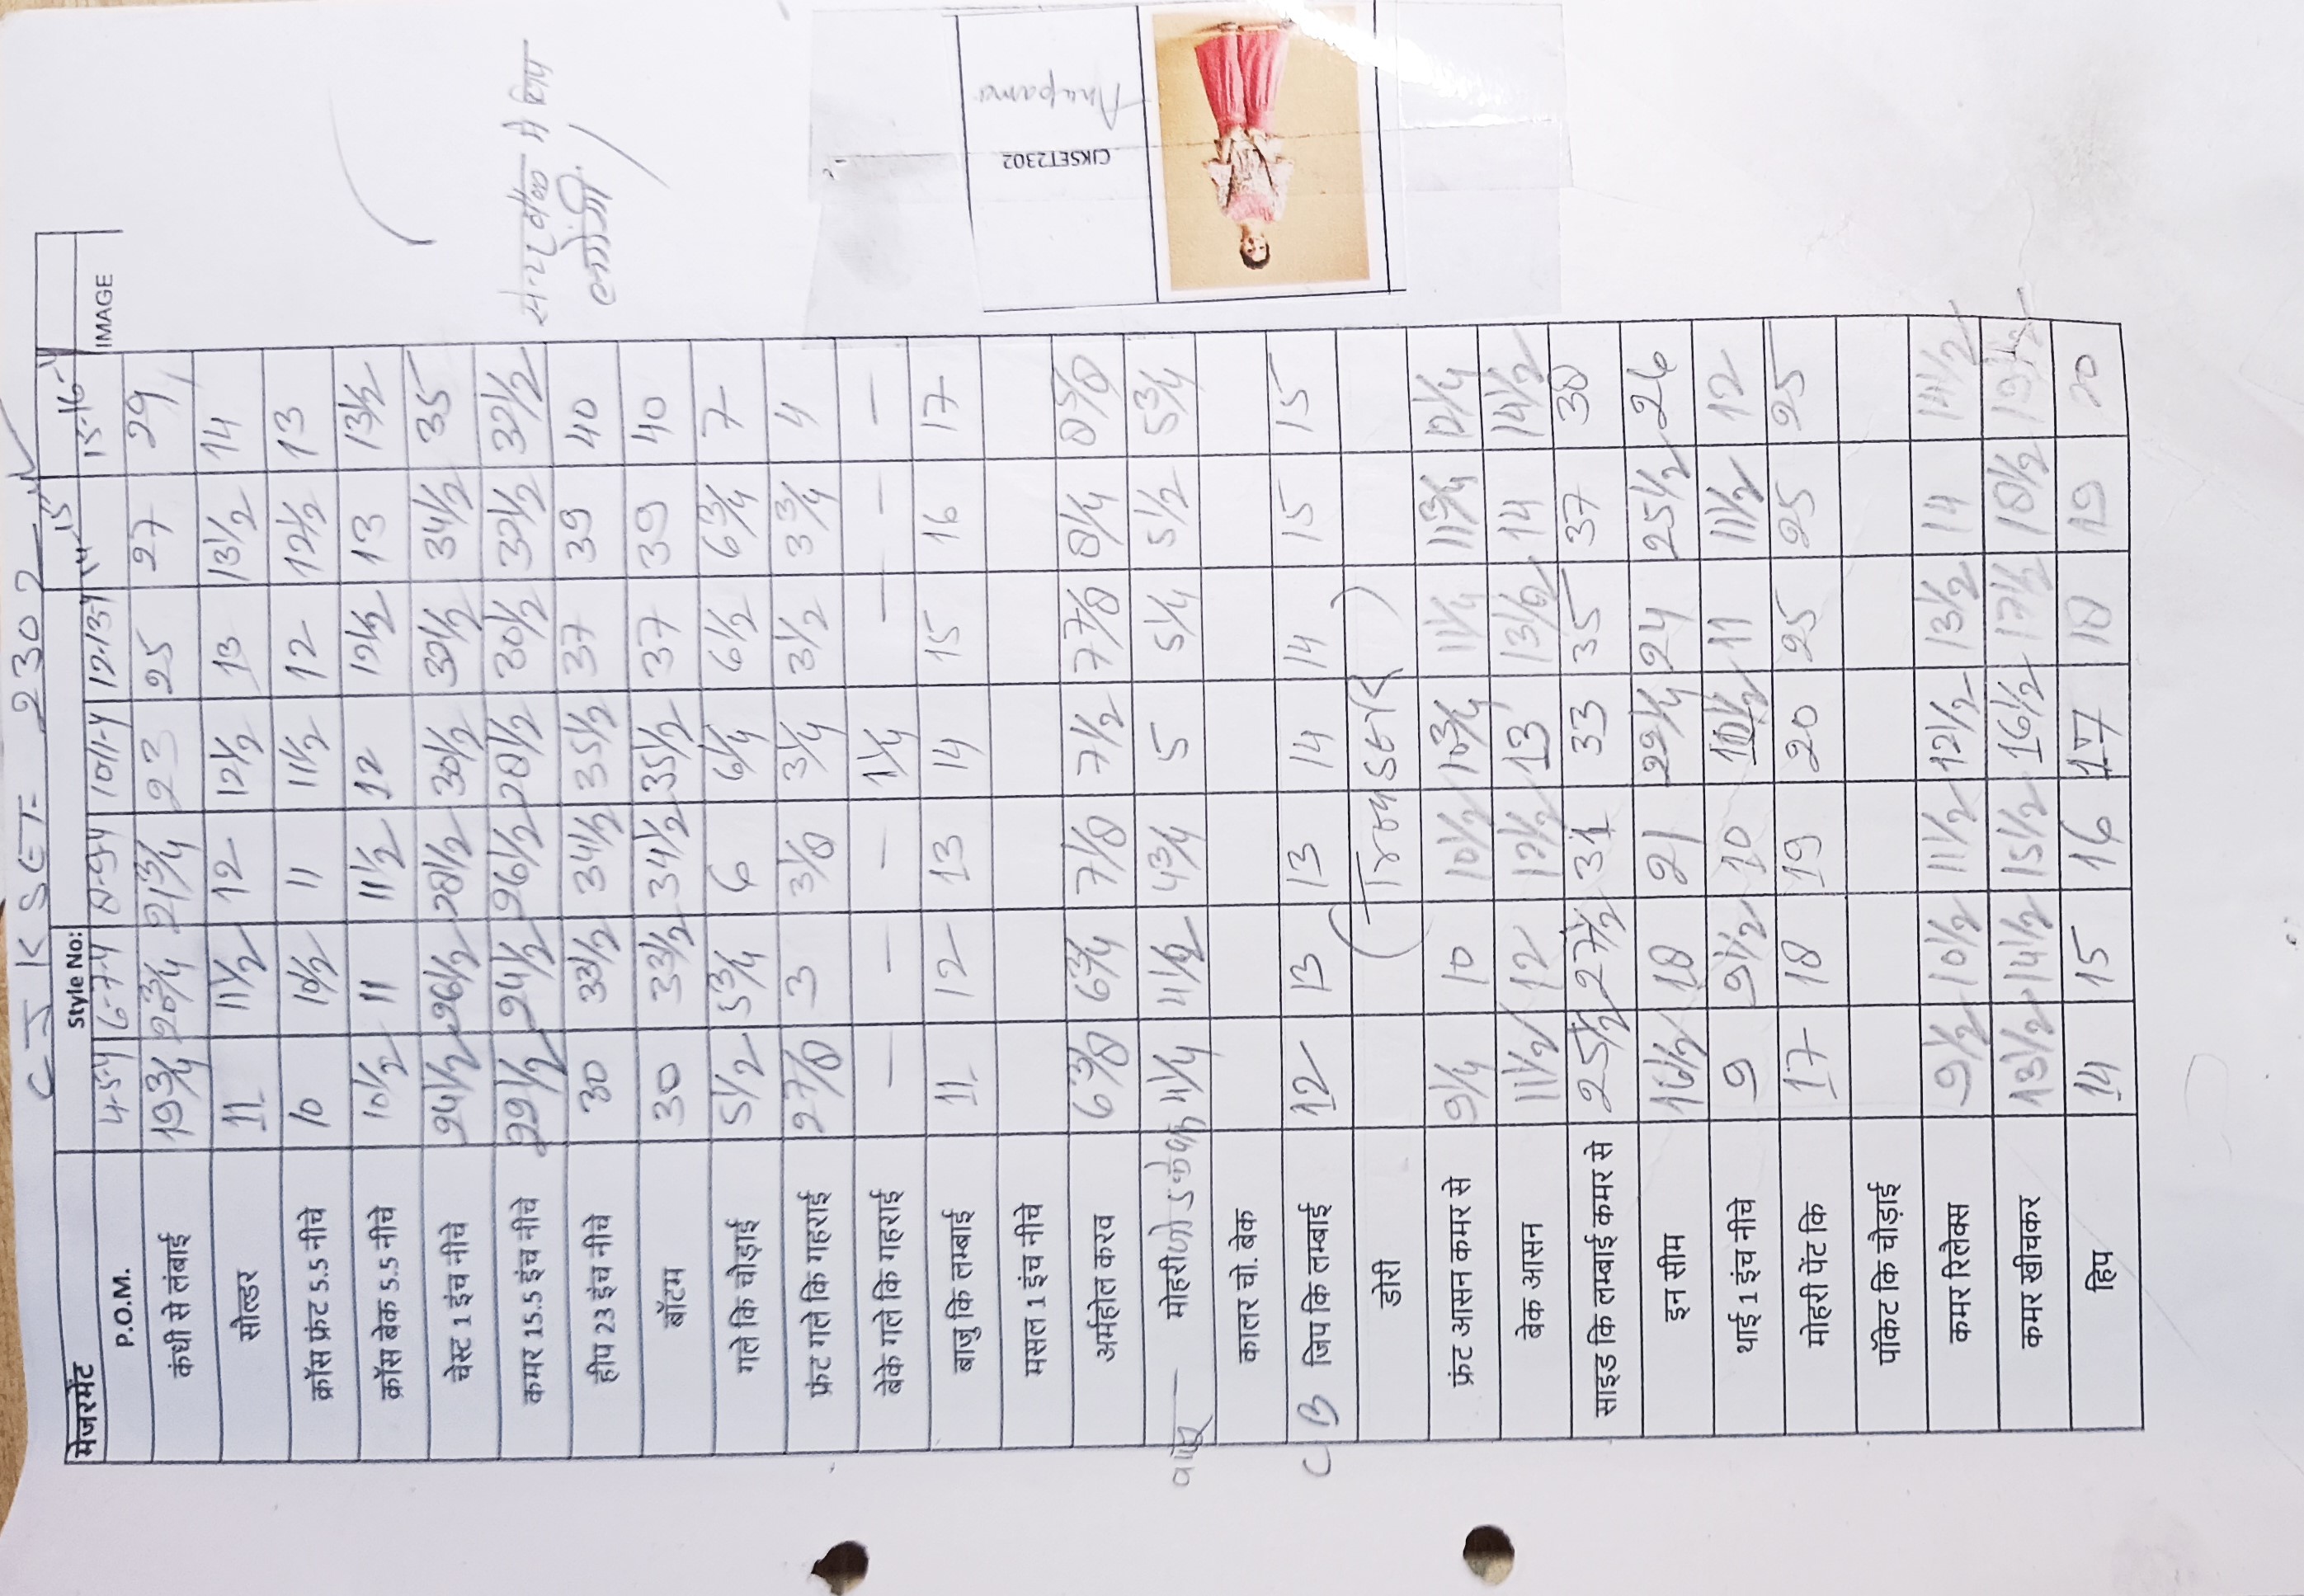 CJKSET-2302
मेजरमेंट Style No:
P.O.M. 4-5-y 6-7-y 8-9-y 10-11-y 12-13-y 14-15 15-16-y IMAGE
कंधी से लंबाई 19 3/4 20 3/4 21 3/4 23 25 27 29
सौल्डर 11 11 1/2 12 12 1/2 13 13 1/2 14
क्रॉस फ्रंट 5.5 नीचे 10 10 1/2 11 11 1/2 12 12 1/2 13
क्रॉस बेक 5.5 नीचे 10 1/2 11 11 1/2 12 12 1/2 13 13 1/2
चेस्ट 1 इंच नीचे 24 1/2 26 1/2 28 1/2 30 1/2 32 1/2 34 1/2 35
कमर 15.5 इंच नीचे 22 1/2 24 1/2 26 1/2 28 1/2 30 1/2 32 1/2 37 1/2
हीप 23 इंच नीचे 30 33 1/2 34 1/2 35 1/2 37 39 40
बॉटम 30 33 1/2 34 1/2 35 1/2 37 39 40
गले कि चौड़ाई 5 1/2 5 3/4 6 6 1/4 6 1/2 6 3/4 7
फ्रंट गले कि गहराई 2 7/8 3 3 1/8 3 1/4 3 1/2 3 3/4 4
बेके गले कि गहराई — — — 1 1/4 — — —
बाजु कि लम्बाई 11 12 13 14 15 16 17
मसल 1 इंच नीचे
अर्महोल करव 6 3/8 6 3/4 7 1/8 7 1/2 7 7/8 8 1/4 8 5/8
मोहरी 4 1/4 4 1/2 4 3/4 5 5 1/4 5 1/2 5 3/4
कालर चो. बेक
C B जिप कि लम्बाई 12 13 13 14 14 15 15
डोरी (ट्राउजर)
फ्रंट आसन कमर से 9 1/4 10 10 1/2 10 3/4 11 1/4 11 3/4 12 1/4
बेक आसन 11 1/2 12 12 1/2 13 13 1/2 14 14 1/2
साइड कि लम्बाई कमर से 25 1/2 27 1/2 31 33 35 37 38
इन सीम 16 1/2 18 21 22 1/4 24 25 1/2 26
थाई 1 इंच नीचे 9 9 1/2 10 10 1/2 11 11 1/2 12
मोहरी पेंट कि 17 18 19 20 25 25 25
पॉकिट कि चौड़ाई
कमर रिलैक्स 9 1/2 10 1/2 11 1/2 12 1/2 13 1/2 14 14 1/2
कमर खीचकर 13 1/2 14 1/2 15 1/2 16 1/2 17 1/2 18 1/2 19 1/2
हिप 14 15 16 17 18 19 20
लगेगी
CJKSET2302
Anupama